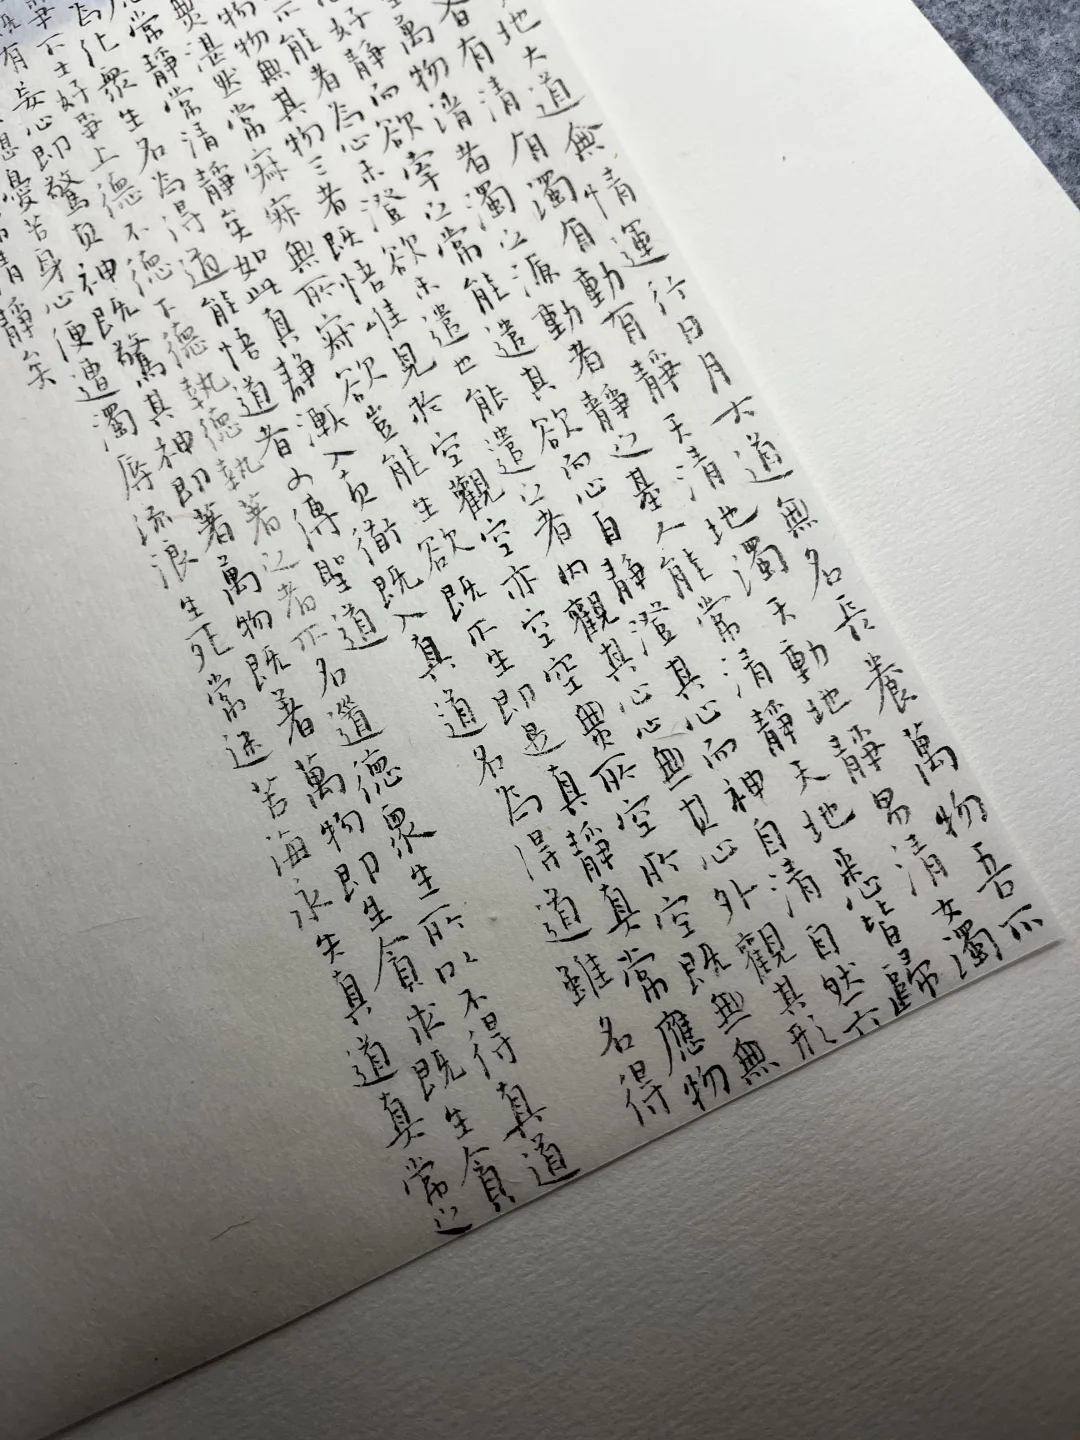 地大道無情運行日月大道無名長養萬物吾不
者有清有濁有動有靜天清地濁天動地靜男清女濁
萬物清者濁之源動者靜之基人能常清靜天地悉皆歸
好靜而欲牽之常能遣其欲而心自靜澄其心而神自清自然六
不能者為心未澄欲未遣也能遣之者內觀其心心無其心外觀其形
物無其物三者既悟唯見於空觀空亦空空無所空所空既無無
無湛然常寂寂無所寂欲豈能生欲既不生即是真靜真常應物
常靜常清靜矣如此真靜漸入真道既入真道名為得道雖名得
為化眾生名為得道能悟道者可傳聖道
爭下士好爭上德不德下德執德執著之者不名道德眾生所以不得真道
既有妄心即驚其神既驚其神即著萬物既著萬物即生貪求既生貪
想憂苦身心便遭濁辱流浪生死常沉苦海永失真道真常之
清靜矣